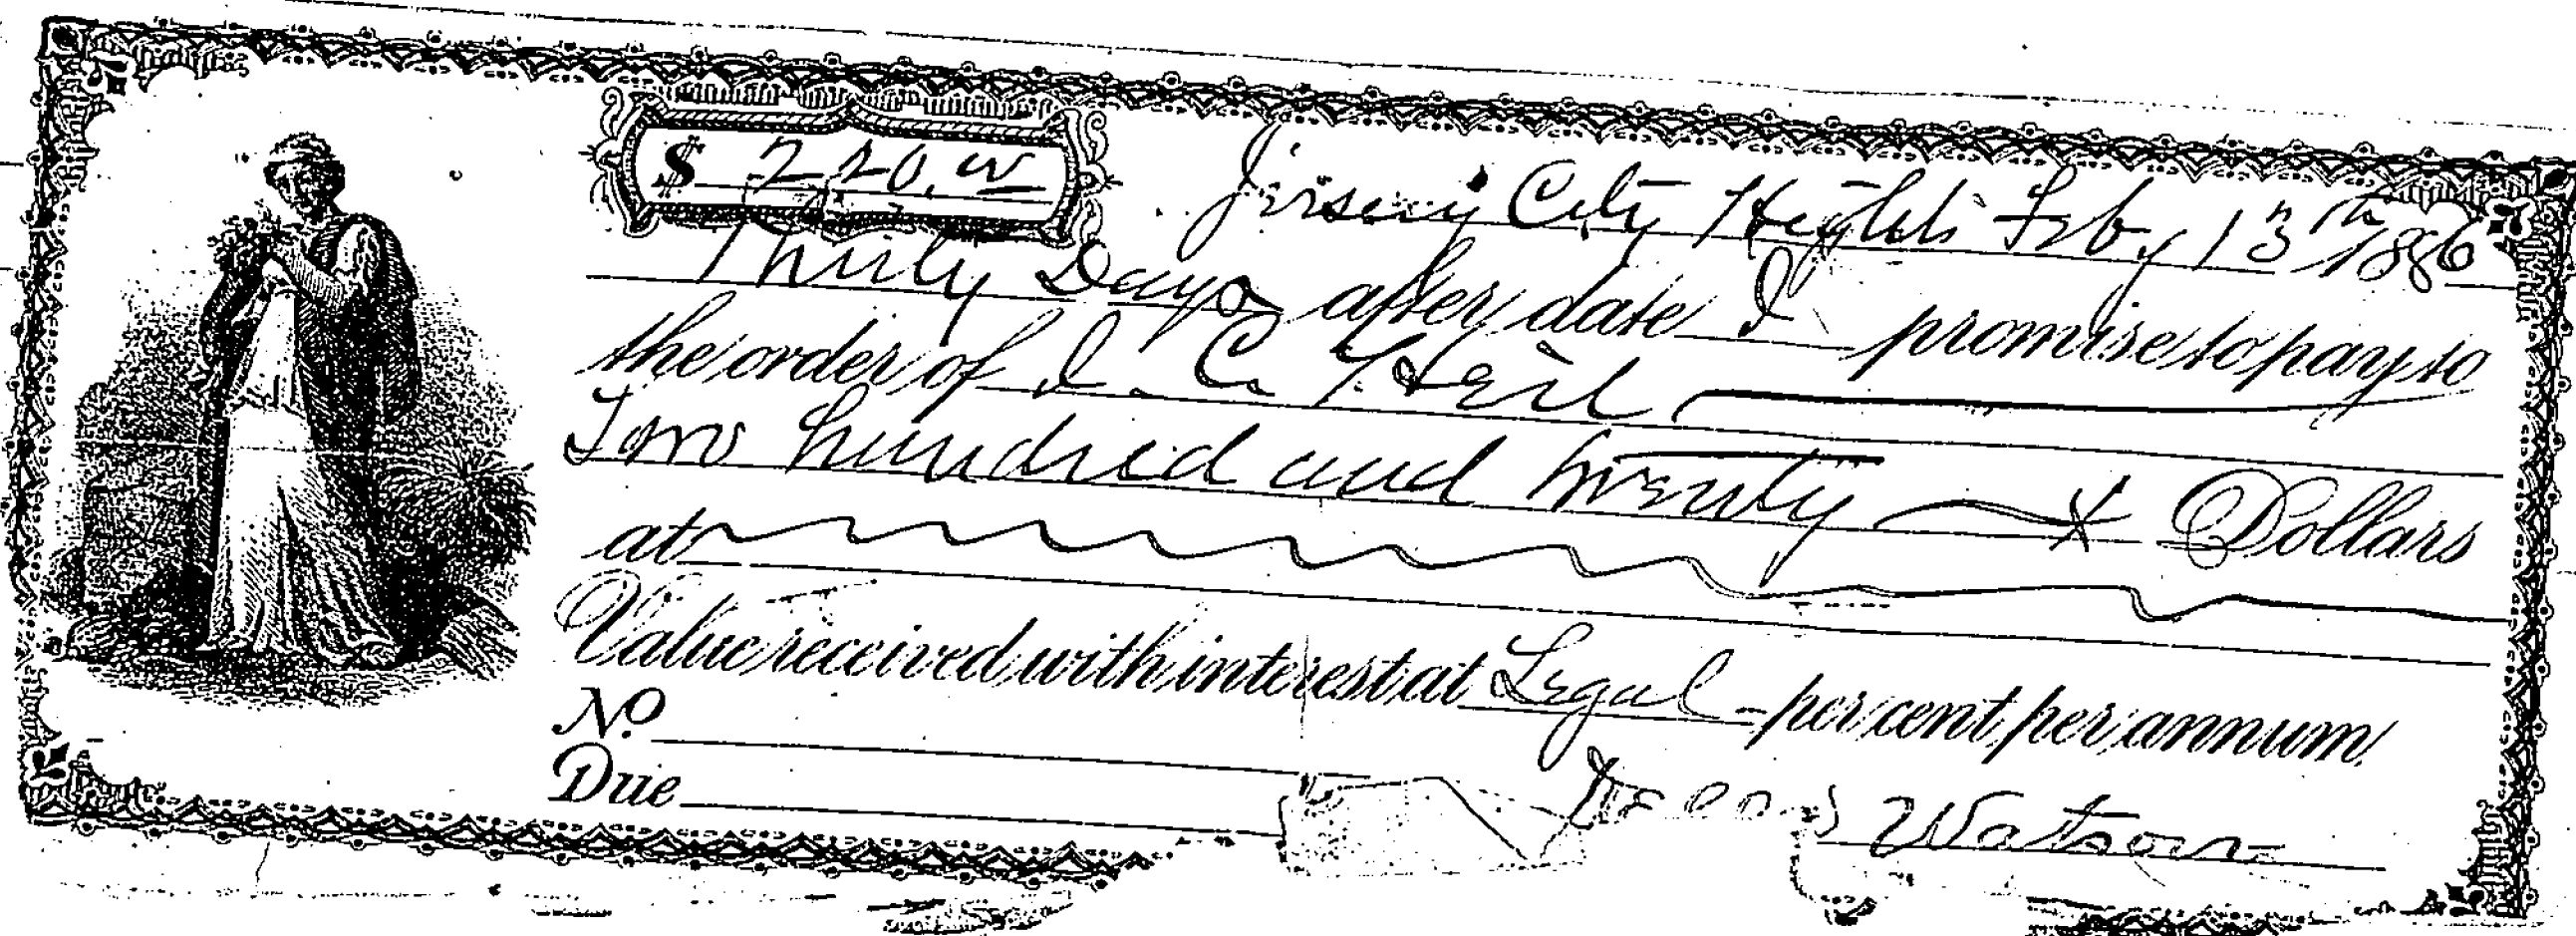 $ 220.00
Jersey City Heights Feb. 13th 1886
Thirty Days after date I promise to pay to
the order of I. C. Heil
Two hundred and twenty Dollars
at
Value received with interest at Legal per cent per annum
No.
Due
Watson